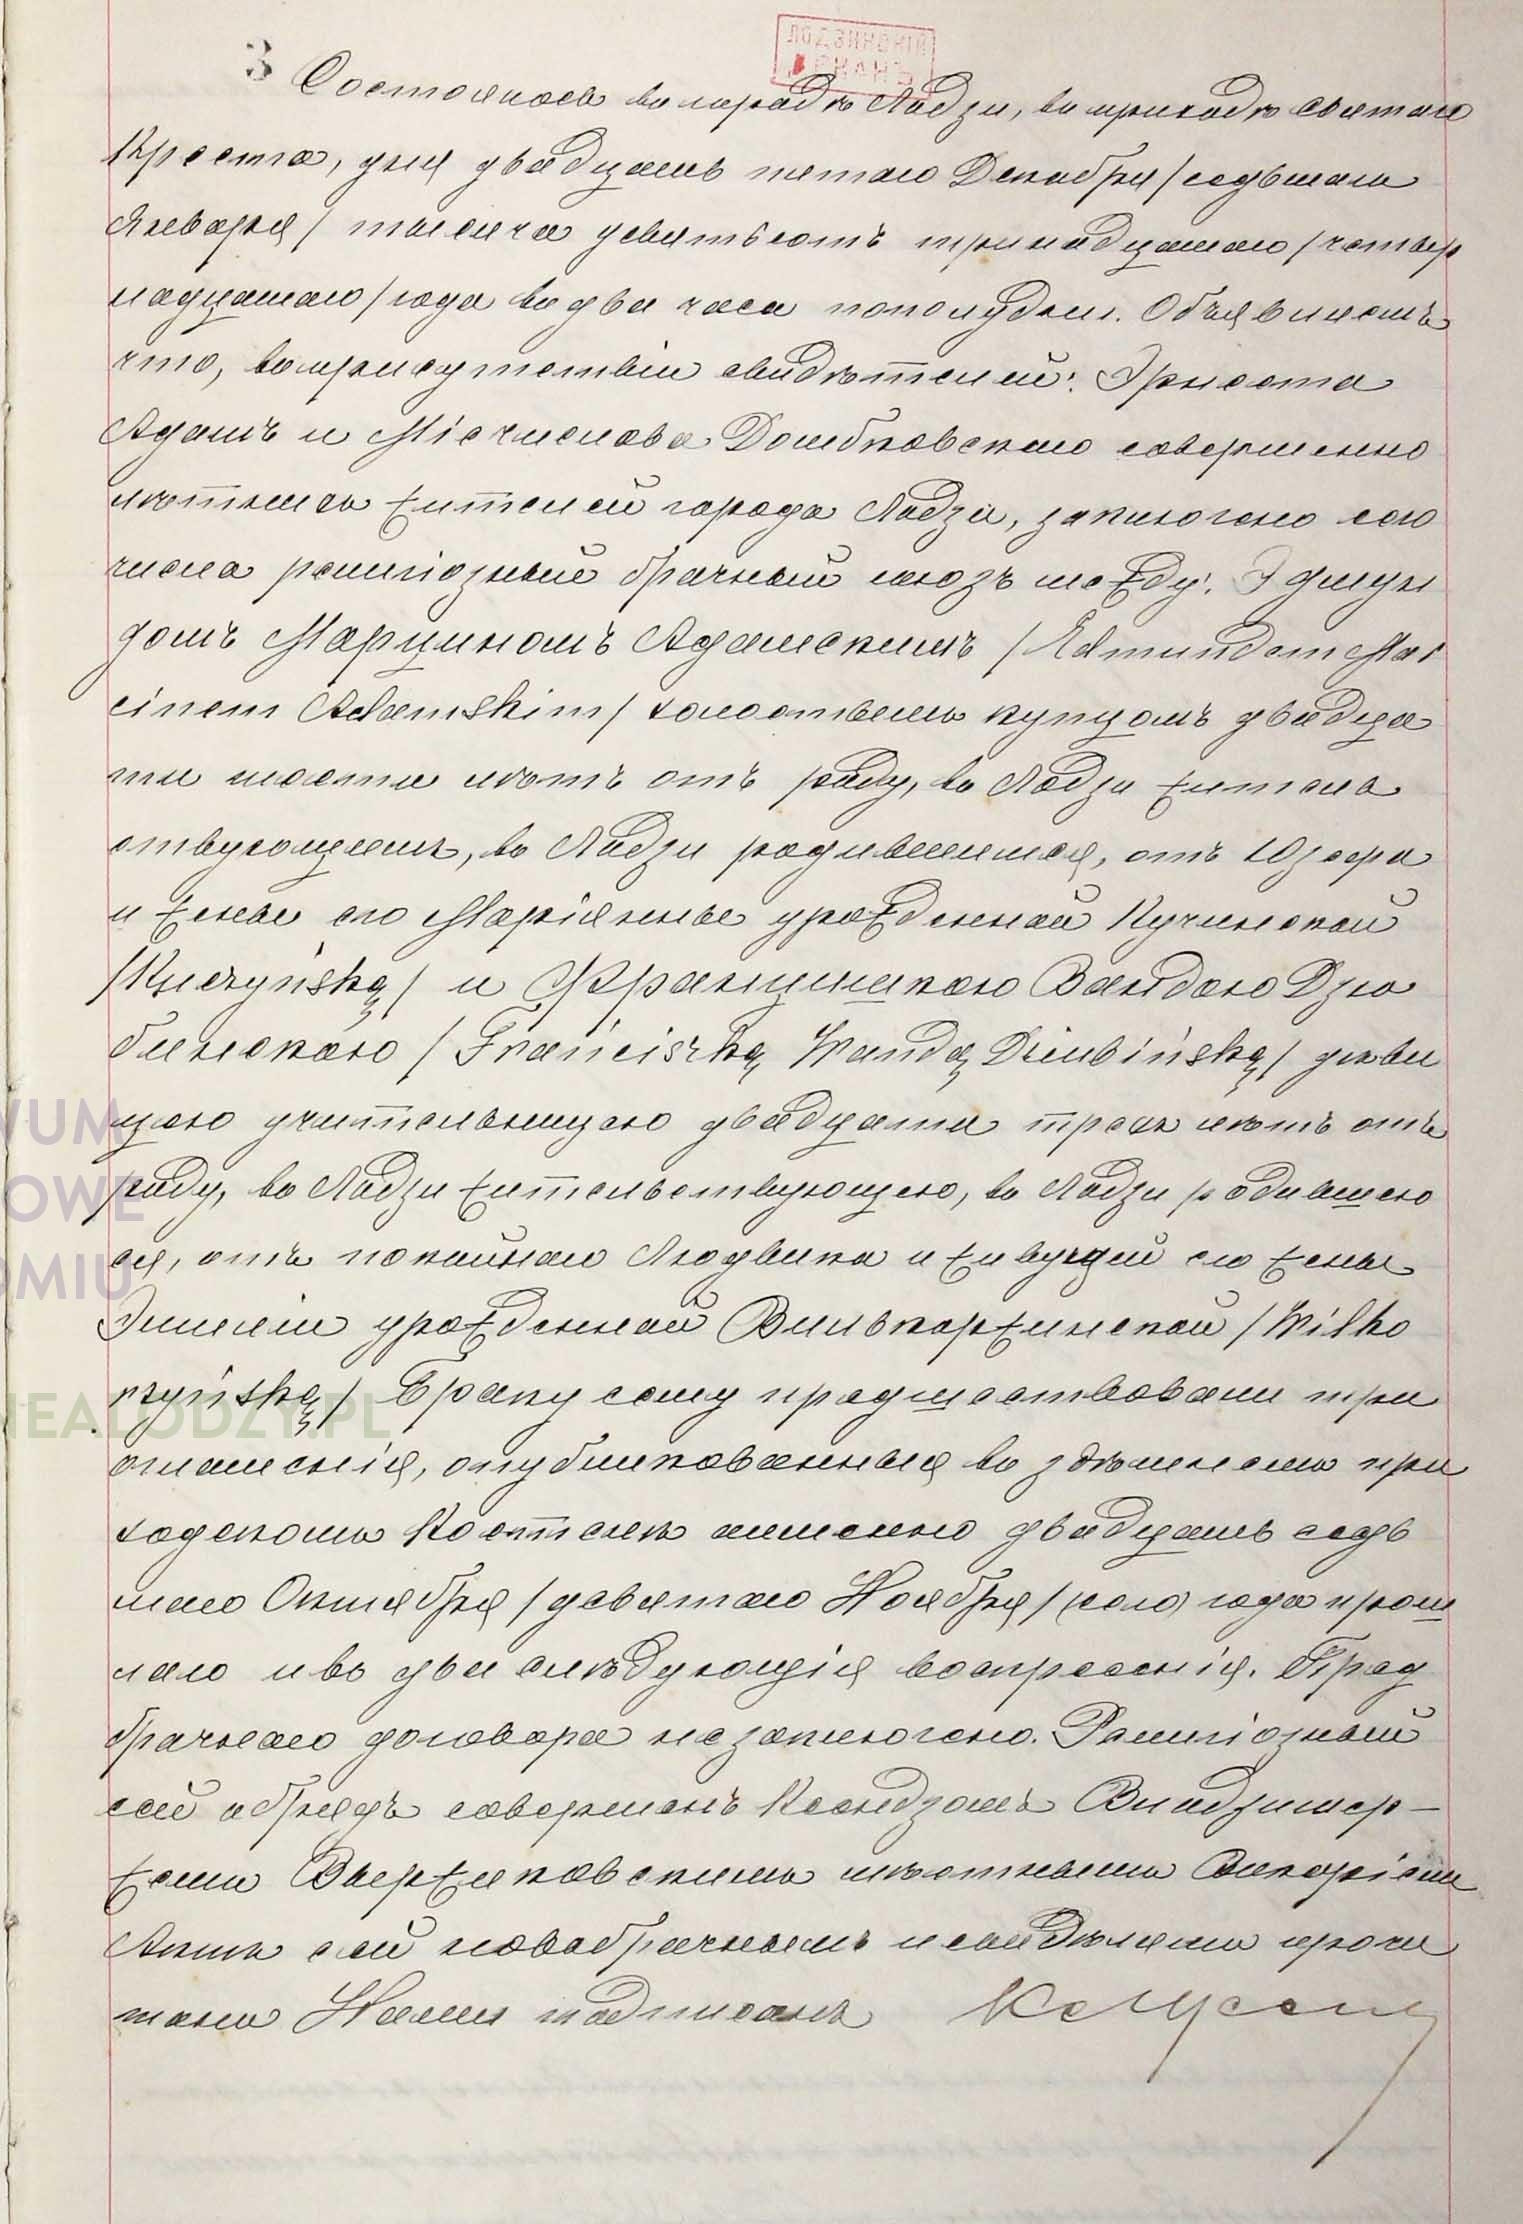 ЛОДЗИНСКІЙ
ДЕКАНЪ
3 Состоялось въ городѣ Лодзи, въ приходѣ святаго
Креста, дня двадцать пятаго Декабря /седьмаго
Января/ тысяча девятьсотъ тринадцатаго /четыр
надцатаго/ года въ два часа пополудни. Объявляемъ
что, въ присутствіи свидѣтелей: Эрнеста
Адамъ и Мѣчислава Домбковскаго совершенно
лѣтныхъ жителей города Лодзи, заключено сего
числа религіозный брачный союзъ между: Эдмун
домъ Марциномъ Адамскимъ /Edmundem Mar
cinem Adamskim/ холостымъ купцомъ двадца
ти шести лѣтъ отъ роду, въ Лодзи жительс
твующимъ, въ Лодзи родившимся, отъ Юзефа
и жены его Маріянны урожденной Кучинской
/Kuczyńską/ и Францишкою Вандою Дзю
бинскою /Franciszką Wandą Dziubińską/ дѣви
цею учительницею двадцати трехъ лѣтъ отъ
роду, въ Лодзи жительствующею, въ Лодзи родившею
ся, отъ покойнаго Людвика и живущей его жены
Эмиліи урожденной Вилькоржинской /Wilko
rzyńską/ Браку сему предшествовали три
оглашенія, опубликованныя въ здѣшнемъ при
ходскомъ Костелѣ именно двадцать седь
маго Октября /девятаго Ноября/ сего года прош
лаго и въ два слѣдующія воскресенія. Пред
брачнаго договора не заключено. Религіозный
сей обрядъ совершенъ Ксендзомъ Владзимер-
жемъ мѣстнымъ Викаріемъ
Актъ сей новобрачнымъ и свидѣтелямъ прочи
танъ Нами подписанъ
WUM
OWE
OMIU
NEALODZY.PL